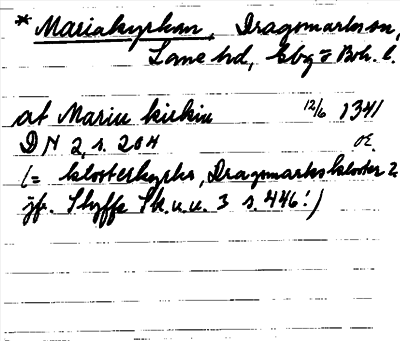 * Mariakyrkan, Dragsmarks sn,
Lane hd, Gbg o Boh. l.
at Mariu kirkiu 12/6 1341
DN 2, s. 204 OE.
(= klosterkyrka, Dragsmarks kloster 2.
jfr. Styffe Sk. u. u. 3 s. 446!)